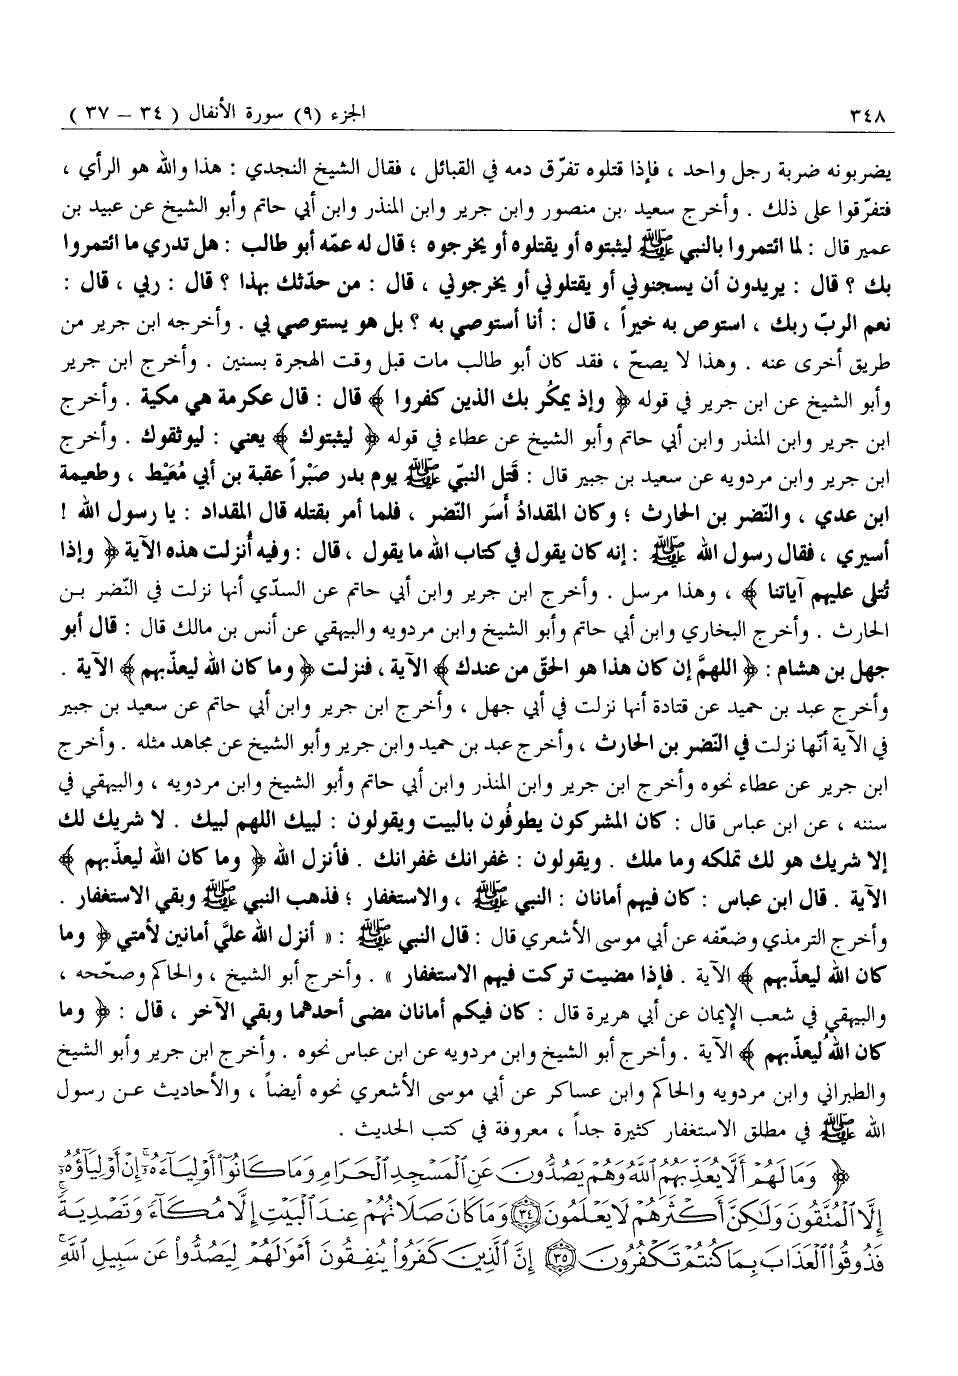 ٣٤٨ الجزء (٩) سورة الأنفال ( ٣٤ – ٣٧ )
يضربونه ضربة رجل واحد ، فإذا قتلوه تفرّق دمه في القبائل ، فقال الشيخ النجدي : هذا والله هو الرأي ،
فتفرّقوا على ذلك . وأخرج سعيد بن منصور وابن جرير وابن المنذر وابن أبي حاتم وأبو الشيخ عن عبيد بن
عمير قال : لما ائتمروا بالنبي ﷺ ليثبتوه أو يقتلوه أو يخرجوه ؛ قال له عمّه أبو طالب : هل تدري ما ائتمروا
بك ؟ قال : يريدون أن يسجنوني أو يقتلوني أو يخرجوني ، قال : من حدّثك بهذا ؟ قال : ربي ، قال :
نعم الربّ ربك ، استوص به خيراً ، قال : أنا أستوصي به ؟ بل هو يستوصي بي . وأخرجه ابن جرير من
طريق أخرى عنه . وهذا لا يصحّ ، فقد كان أبو طالب مات قبل وقت الهجرة بسنين . وأخرج ابن جرير
وأبو الشيخ عن ابن جرير في قوله ﴿ وإذ يمكُر بك الذين كفروا ﴾ قال : قال عكرمة هي مكية . وأخرج
ابن جرير وابن المنذر وابن أبي حاتم وأبو الشيخ عن عطاء في قوله ﴿ ليثبتوك ﴾ يعني : ليوثقوك . وأخرج
ابن جرير وابن مردويه عن سعيد بن جبير قال : قَتل النبيّ ﷺ يوم بدر صَبْراً عقبة بن أبي مُعَيْط ، وطعيمة
ابن عدي ، والنّضر بن الحارث ؛ وكان المقدادُ أَسَر النّضر ، فلما أمر بقتله قال المقداد : يا رسول الله !
أسيري ، فقال رسول الله ﷺ : إنه كان يقول في كتاب الله ما يقول ، قال : وفيه أُنزلت هذه الآية ﴿ وإذا
تُتلى عليهم آياتنا ﴾ ، وهذا مرسل . وأخرج ابن جرير وابن أبي حاتم عن السدّي أنها نزلت في النّضر بن
الحارث . وأخرج البخاري وابن أبي حاتم وأبو الشيخ وابن مردويه والبيهقي عن أنس بن مالك قال : قال أبو
جهل بن هشام : ﴿ اللهمَّ إن كان هذا هو الحقّ من عندك ﴾ الآية ، فنزلت ﴿ وما كان الله ليعذّبهم ﴾ الآية .
وأخرج عبد بن حميد عن قتادة أنها نزلت في أبي جهل ، وأخرج ابن جرير وابن أبي حاتم عن سعيد بن جبير
في الآية أنّها نزلت في النّضر بن الحارث ، وأخرج عبد بن حميد وابن جرير وأبو الشيخ عن مجاهد مثله . وأخرج
ابن جرير عن عطاء نحوه وأخرج ابن جرير وابن المنذر وابن أبي حاتم وأبو الشيخ وابن مردويه ، والبيهقي في
سننه ، عن ابن عباس قال : كان المشركون يطوفُون بالبيت ويقولون : لبيك اللهم لبيك . لا شريك لك
إلا شريك هو لك تملكه وما ملك . ويقولون : غفرانك غفرانك . فأنزل الله ﴿ وما كان الله ليعذّبهم ﴾
الآية . قال ابن عباس : كان فيهم أمانان : النبي ﷺ ، والاستغفار ؛ فذهب النبي ﷺ وبقي الاستغفار .
وأخرج الترمذي وضعّفه عن أبي موسى الأشعري قال : قال النبي ﷺ : « أنزل الله عليَّ أمانين لأمتي ﴿ وما
كان الله ليعذّبهم ﴾ الآية . فإذا مضيت تركت فيهم الاستغفار » . وأخرج أبو الشيخ ، والحاكم وصحّحه ،
والبيهقي في شعب الإيمان عن أبي هريرة قال : كان فيكم أمانان مضى أحدهما وبقي الآخر ، قال : ﴿ وما
كان اللهُ ليعذّبهم ﴾ الآية . وأخرج أبو الشيخ وابن مردويه عن ابن عباس نحوه . وأخرج ابن جرير وأبو الشيخ
والطبراني وابن مردويه والحاكم وابن عساكر عن أبي موسى الأشعري نحوه أيضاً ، والأحاديث عن رسول
الله ﷺ في مطلق الاستغفار كثيرة جداً ، معروفة في كتب الحديث .
﴿ وَمَا لَهُمْ أَلَّا يُعَذِّبَهُمُ ٱللَّهُ وَهُمْ يَصُدُّونَ عَنِ ٱلْمَسْجِدِ ٱلْحَرَامِ وَمَا كَانُوٓا۟ أَوْلِيَآءَهُۥٓ ۚ إِنْ أَوْلِيَآؤُهُۥٓ
إِلَّا ٱلْمُتَّقُونَ وَلَٰكِنَّ أَكْثَرَهُمْ لَا يَعْلَمُونَ ۝٣٤ وَمَا كَانَ صَلَاتُهُمْ عِندَ ٱلْبَيْتِ إِلَّا مُكَآءً وَتَصْدِيَةً ۚ
فَذُوقُوا۟ ٱلْعَذَابَ بِمَا كُنتُمْ تَكْفُرُونَ ۝٣٥ إِنَّ ٱلَّذِينَ كَفَرُوا۟ يُنفِقُونَ أَمْوَٰلَهُمْ لِيَصُدُّوا۟ عَن سَبِيلِ ٱللَّهِ ۚ